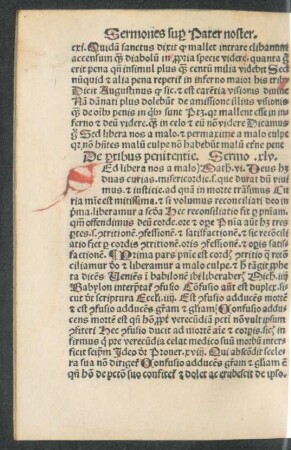 Sermones sup Pater noster.
exi. Quidā sanctus dixit ꝙ mallet intrare clibanum
accensum ꝙ̄ diabolū in ꝓpria specie videre. quanta g̃
erit pena qñ insimul plus ꝙ̄ centū milia videbit Secd̄
nūquid ⁊ alia pena reperit in inferno maior his trib⁹
Dicit Augustinus ꝙ sic. ⁊ est carētia visionis diuine
Nā dānati plus dolebūt de amissione illius visionis
ꝙ̄ de oīb⁹ penis in qb⁹ sunt ꝙ mallent esse in in
ferno ⁊ deū videre. ꝙ̄ in celo ⁊ eū nō videre Dicamus
g̃ Sed libera nos a malo. ⁊ permaxime a malo culpe
qr nō hñtes malū culpe nō habebūt malū etne pene
De ptibus penitentie. Sermo .xlv.
Sed libera nos a malo) Math. vi. Deus hȝ
duas curias. misericordie. s. que durat dū viui
mus. ⁊ iusticie. ad quā in morte trāsimus Cu
ria mīe est mitissima. ⁊ si volumus reconciliari deo in
pma. liberamur a scd̄a Hec reconsiliatio fit p pniam.
qm̄ offendimus deū corde. ore ⁊ ope Pnīa aūt hȝ tres
ptes. s. ꝯtritionē. ꝯfessionē ⁊ satisfactionē. ⁊ sic recōcili
atio fiet p cordis ꝯtritionē. oris ꝯfessionē. ⁊ opis satis
factionē. ¶ Prima pars pnīe est cord̄. ꝯtritio ꝙ recōn
ciliamur dō ⁊ liberamur a malo culpe.
dicēs Venies ī babilonē ibi liberaber⁹
Babylon interptat̃ ꝯfusio Cōfusio aūt est duplex. si
cut dr̄ scriptura Eccl. iiij. Est ꝯfusio adducēs mortē
⁊ est ꝯfusio adducēs gr̃am ⁊ gl̃iam Confusio adduc
cens mortē est qn̄ hō ꝓpter verecūdiā pctī nō vult ip̄sum
ꝯfiteri Hec ꝯfusio ducit ad mortē aīe ⁊ corpis. sic in
firmus ꝙ pre verecūdia celat medico suū morbū inter
ficit seip̄m Ideo dr̄ Prouer. xviij. Qui abscōdit scele
ra sua nō diriget̃ Confusio adducēs gr̃am ⁊ gl̃iam ē
qn̄ hō de pctō suo confitet̃ ⁊ dolet ac erubescit de ipso.